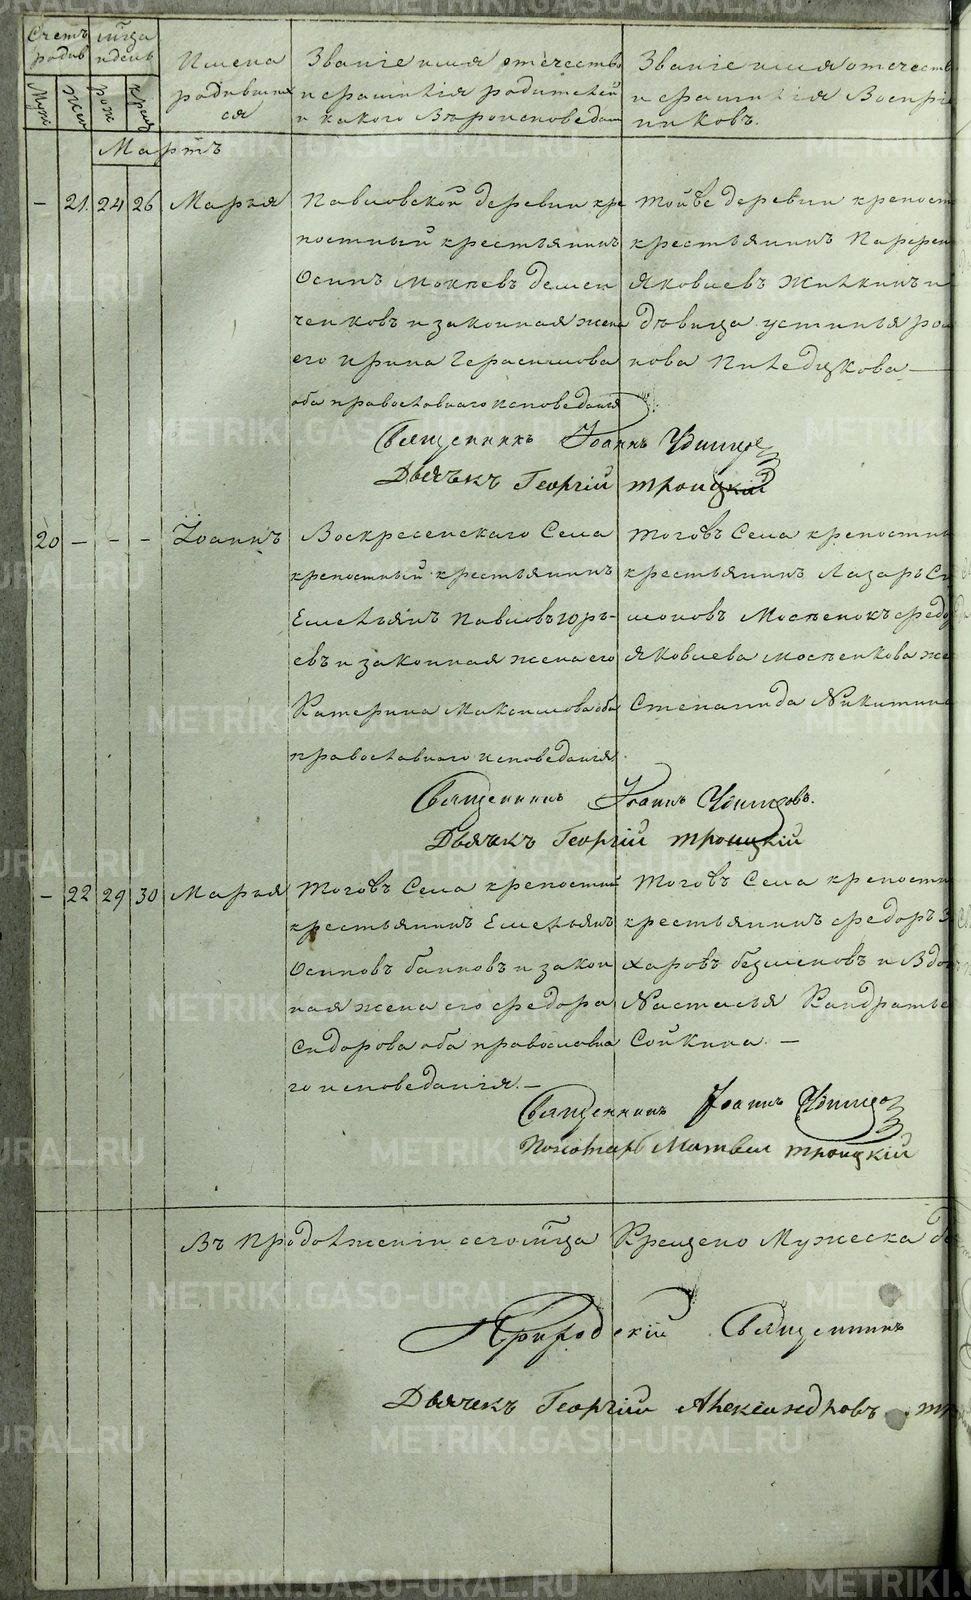 Счетъ родив
мца и день
Имена родившихся
Званіе имя отечество и фамилія родителей и какого Вѣроисповедан
Званіе имя отечеств и фамилія Воспрі никовъ.
Муж
Жен
рож
крещ
Мартъ
— 21. 24 26 Марья
Павловской деревни кре
постный крестьянинъ
Осипъ Мокѣевъ Демен
ченковъ и законная жена
его Ирина Герасимова
оба православнаго исповеданія
той же деревни крепост
крестьянинъ Парфен
Яковлевъ Жилкинъ и
дѣвица устинья ро
нова —
Священникъ Іоаннъ Удинцов
Дьячекъ Георгій троицкій
20 — — — Іоаннъ
Воскресенскаго Села
крепостный крестьянинъ
Емельянъ Павловъ Юрь-
евъ и законная жена его
Катерина Максимова оба
православнаго исповеданія.
тогожъ Села крепостны
крестьянинъ Лазарь Си
моновъ Мосѣенокъ федо
яковлева мосѣенкова же
Степанида Никитина
Священникъ Іоаннъ Удинцовъ.
Дьячекъ Георгій троицкій
— 22 29 30 Марья
Тогожъ Села крепостный
крестьянинъ Емельянъ
Осиповъ баиновъ и закон
ная жена его федора
Сидорова оба православна
го исповеданія. —
Тогожъ Села крепостны
крестьянинъ федоръ З
харовъ безменовъ и Вдо
Настасья Кандратье
Сойкина. —
Священникъ Іоаннъ Удинцов
Пономарь Матвеи троицкій
Въ продолженіи сего мца Крещено Мужеска
Священникъ
Дьячекъ Георгій Александровъ тр
METRIKI.GASO-URAL.RU